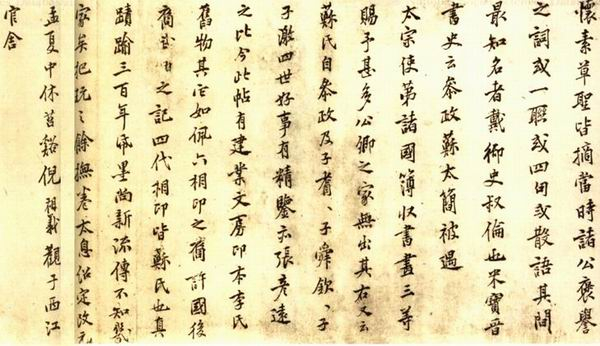 懷素草聖皆摘當時諸公褒譽
之詞或一聯或四句或散語其間
最知名者戴御史叔倫也米寶晉
書史云參政蘇太簡被遇
太宗使第諸國簿收書畫三等
賜予甚多公卿之家無出其右又云
蘇氏自參政及子耆、子舜欽、子
子激四世好事有精鑒亦張彥遠
之比今此帖有建業文房印本李氏
舊物其它如佩六相印之裔許國後
裔武之記四代相印皆蘇氏也真
蹟踰三百年紙墨尚新流傳不知幾
家矣把玩之餘撫卷太息紹定改元
孟夏中休苕谿倪祖義觀于西江
官舍